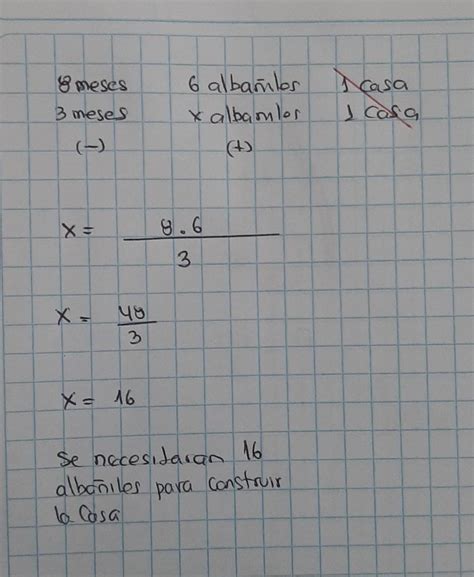 8 meses 6 albañiles 1 casa
3 meses x albañiles 1 casa
(-) (+)
x = 8.6
3
x = 48
3
x = 16
Se necesitaran 16
albañiles para construir
la casa